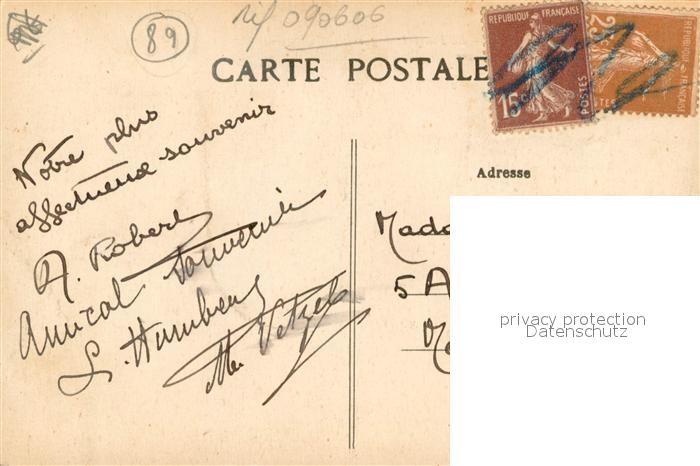 89
rif 090606
CARTE POSTALE
REPUBLIQUE FRANÇAISE
15c
POSTES
25c
REPUBLIQUE FRANÇAISE
POSTES
Notre plus
affectueux souvenir
A. Robert
Amical souvenir
L. Humbert
Adresse
Mada
5 A
privacy protection
Datenschutz